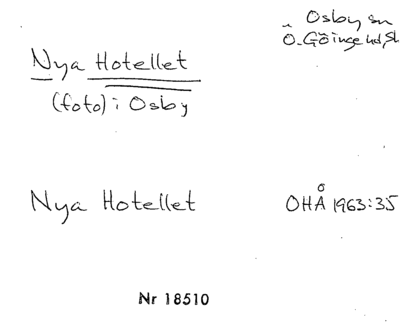 Osby sn
Ö. Göinge hd, Sk
Nya Hotellet
(foto) i Osby
Nya Hotellet OHÅ 1963:35
Nr 18510